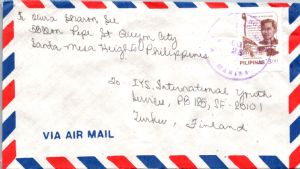 Sharon Lee
Pope St Quezon City
Santa Mesa Heights Philippines
PILIPINAS
MANILA
To IYS, International Youth
Service, PB 125, SF-20101
Turku, Finland
VIA AIR MAIL